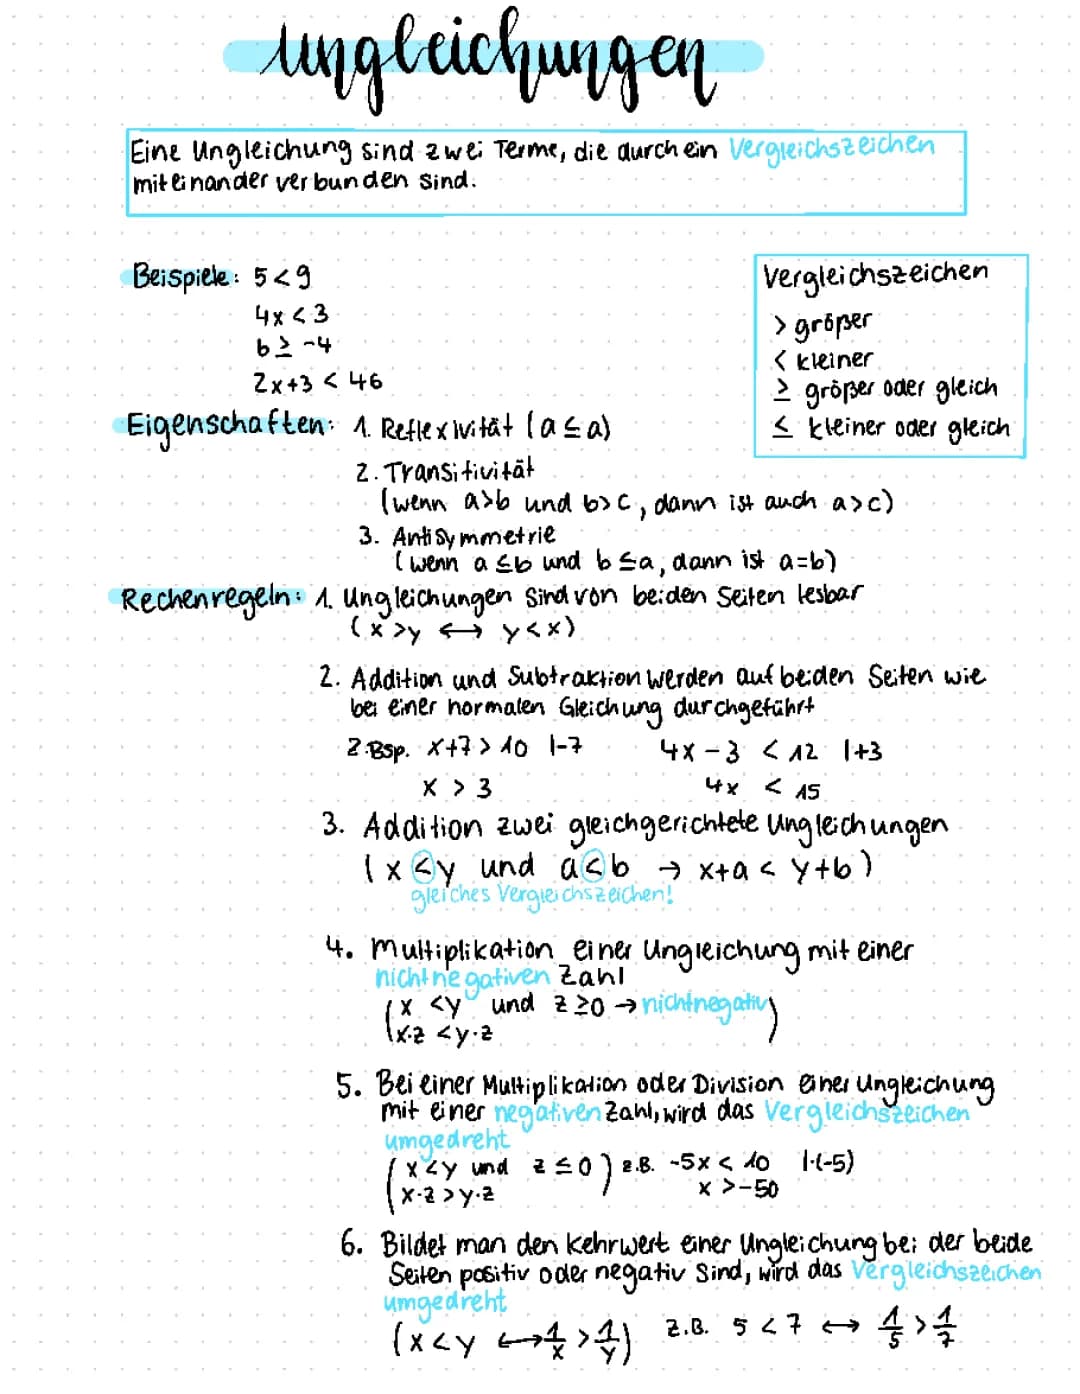 Ungleichungen
Eine Ungleichung sind zwei Terme, die durch ein Vergleichszeichen
miteinander verbunden sind.
Beispiele: 5 < 9
4x < 3
b ≥ -4
2x+3 < 46
Vergleichszeichen
> größer
< kleiner
≥ größer oder gleich
≤ kleiner oder gleich
Eigenschaften: 1. Reflexivität (a ≤ a)
2. Transitivität
(wenn a>b und b>c, dann ist auch a>c)
3. Antisymmetrie
(wenn a ≤b und b ≤a, dann ist a=b)
Rechenregeln: 1. Ungleichungen sind von beiden Seiten lesbar
(x >y ↔ y<x)
2. Addition und Subtraktion werden auf beiden Seiten wie
bei einer normalen Gleichung durchgeführt
z.Bsp. x+7 > 10 |-7 4x - 3 < 12 |+3
x > 3 4x < 15
3. Addition zwei gleichgerichtete Ungleichungen
(x < y und a < b → x+a < y+b)
gleiches Vergleichszeichen!
4. Multiplikation einer Ungleichung mit einer
nichtnegativen Zahl
(x <y und z ≥0 → nichtnegativ)
x·z <y·z
5. Bei einer Multiplikation oder Division einer Ungleichung
mit einer negativen Zahl, wird das Vergleichszeichen
umgedreht
(x<y und z ≤ 0) z.B. -5x < 10 |·(-5)
x·z >y·z x >-50
6. Bildet man den Kehrwert einer Ungleichung bei der beide
Seiten positiv oder negativ sind, wird das Vergleichszeichen
umgedreht
(x<y ↔ 1/x > 1/y) z.B. 5 < 7 ↔ 1/5 > 1/7